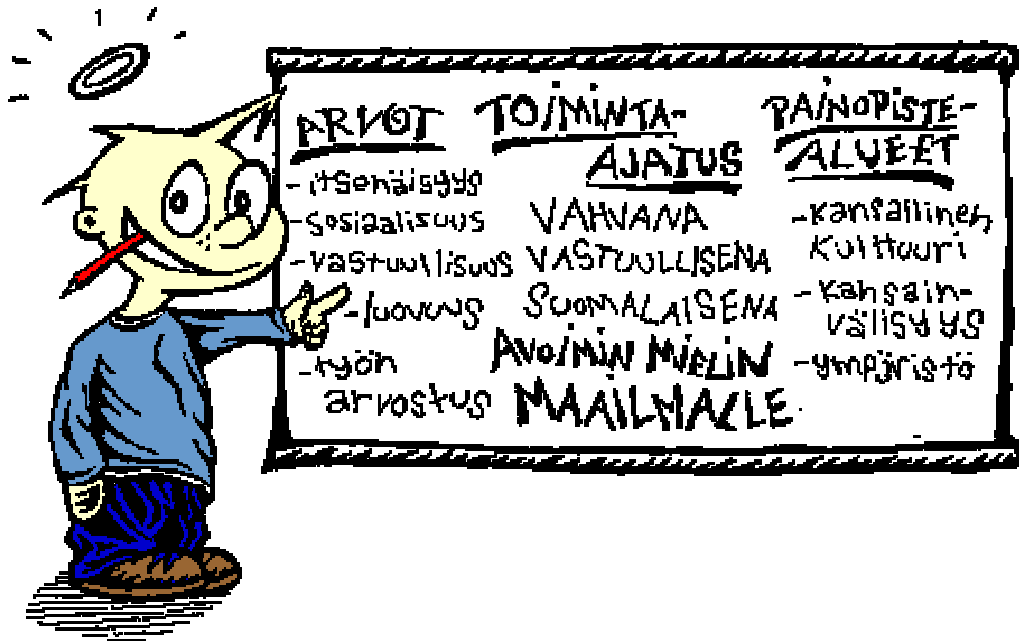 ARVOT
- itsenäisyys
- sosiaalisuus
- vastuullisuus
- luovuus
- työn
arvostus
TOIMINTA-
AJATUS
VAHVANA
VASTUULLISENA
SUOMALAISENA
AVOIMIN MIELIN
MAAILMALLE.
PAINOPISTE-
ALUEET
- kansallinen
kulttuuri
- kansain-
välisyys
- ympäristö